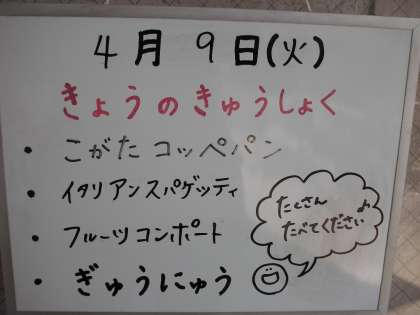 4月9日(火)
きょうのきゅうしょく
・こがたコッペパン
・イタリアンスパゲッティ
・フルーツコンポート
・ぎゅうにゅう
たくさん
たべてください♪